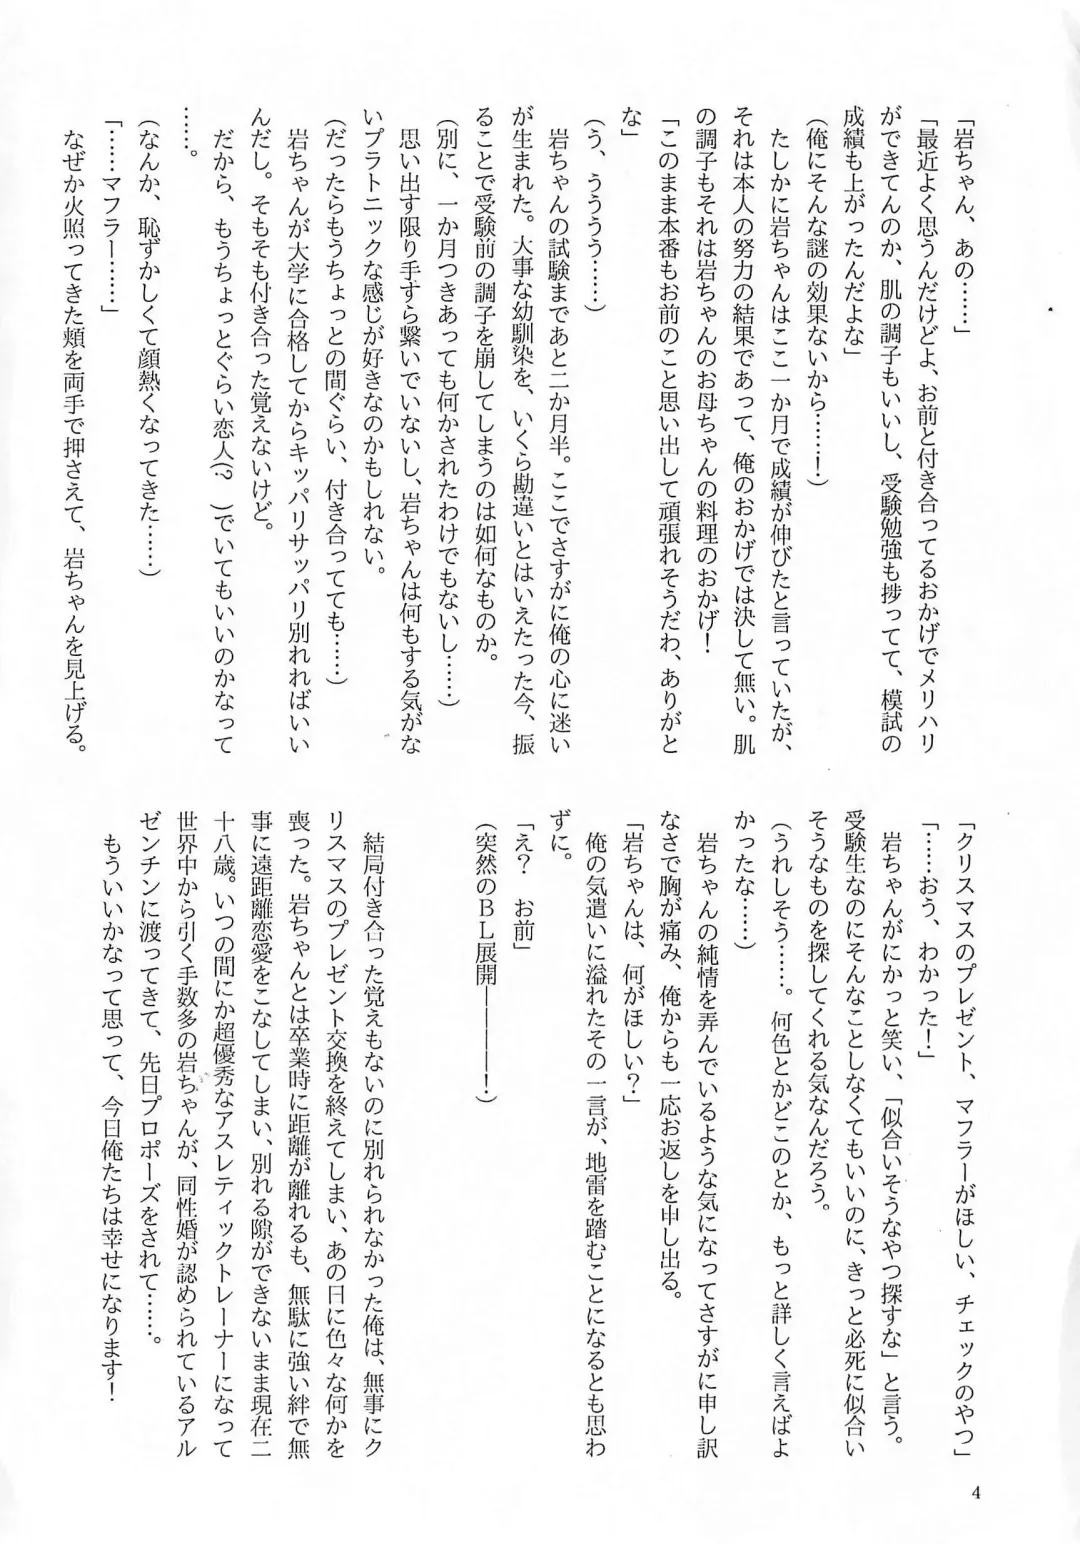 「岩ちゃん、あの……」
「最近よく思うんだけどよ、お前と付き合ってるおかげでメリハリ
ができてんのか、肌の調子もいいし、受験勉強も捗ってて、模試の
成績も上がったんだよな」
（俺にそんな謎の効果ないから……！）
たしかに岩ちゃんはここ一か月で成績が伸びたと言っていたが、
それは本人の努力の結果であって、俺のおかげでは決して無い。肌
の調子もそれは岩ちゃんのお母ちゃんの料理のおかげ！
「このまま本番もお前のこと思い出して頑張れそうだわ、ありがと
な」
（う、うううう……）
岩ちゃんの試験まであと二か月半。ここでさすがに俺の心に迷い
が生まれた。大事な幼馴染を、いくら勘違いとはいえたった今、振
ることで受験前の調子を崩してしまうのは如何なものか。
（別に、一か月つきあっても何かされたわけでもないし……）
思い出す限り手すら繋いでいないし、岩ちゃんは何もする気がな
いプラトニックな感じが好きなのかもしれない。
（だったらもうちょっとの間ぐらい、付き合ってても……）
岩ちゃんが大学に合格してからキッパリサッパリ別れればいい
んだし。そもそも付き合った覚えないけど。
だから、もうちょっとぐらい恋人(？　)でいてもいいのかなって
……。
（なんか、恥ずかしくて顔熱くなってきた……）
「……マフラー……」
なぜか火照ってきた頬を両手で押さえて、岩ちゃんを見上げる。
「クリスマスのプレゼント、マフラーがほしい、チェックのやつ」
「……おう、わかった！」
岩ちゃんがにかっと笑い、「似合いそうなやつ探すな」と言う。
受験生なのにそんなことしなくてもいいのに、きっと必死に似合い
そうなものを探してくれる気なんだろう。
（うれしそう……。何色とかどこのとか、もっと詳しく言えばよ
かったな……）
岩ちゃんの純情を弄んでいるような気になってさすがに申し訳
なさで胸が痛み、俺からも一応お返しを申し出る。
「岩ちゃんは、何がほしい？」
俺の気遣いに溢れたその一言が、地雷を踏むことになるとも思わ
ずに。
「え？　お前」
（突然のＢＬ展開――――！）
結局付き合った覚えもないのに別れられなかった俺は、無事にク
リスマスのプレゼント交換を終えてしまい、あの日に色々な何かを
喪った。岩ちゃんとは卒業時に距離が離れるも、無駄に強い絆で無
事に遠距離恋愛をこなしてしまい、別れる隙ができないまま現在二
十八歳。いつの間にか超優秀なアスレティックトレーナーになって
世界中から引く手数多の岩ちゃんが、同性婚が認められているアル
ゼンチンに渡ってきて、先日プロポーズをされて……。
もういいかなって思って、今日俺たちは幸せになります！
4